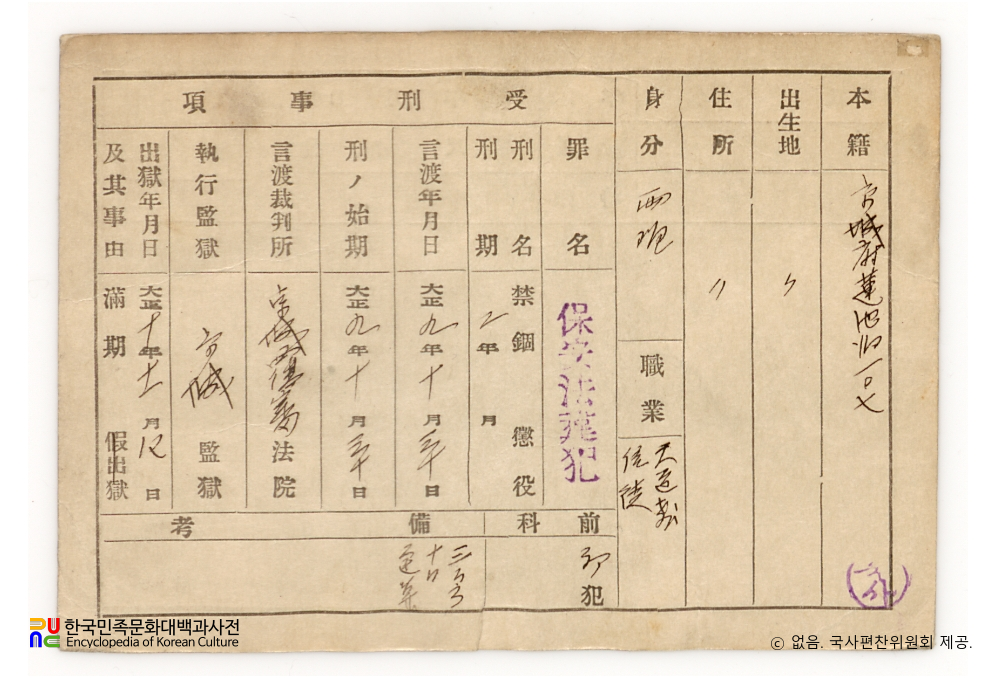 本籍
京城府蓮池洞一〇七
出生地
〃
住所
〃
身分
両班
職業
天道教
信徒
受刑事項
罪名
保安法違犯
刑名
禁錮 懲役
刑期
二年 月
言渡年月日
大正九年十月三十日
刑ノ始期
大正九年十月三十日
言渡裁判所
京城覆審法院
執行監獄
京城監獄
出獄年月日
及其事由
大正十年十二月 日
滿期 假出獄
前科
初犯
備考
한국민족문화대백과사전
Encyclopedia of Korean Culture
© 없음. 국사편찬위원회 제공.